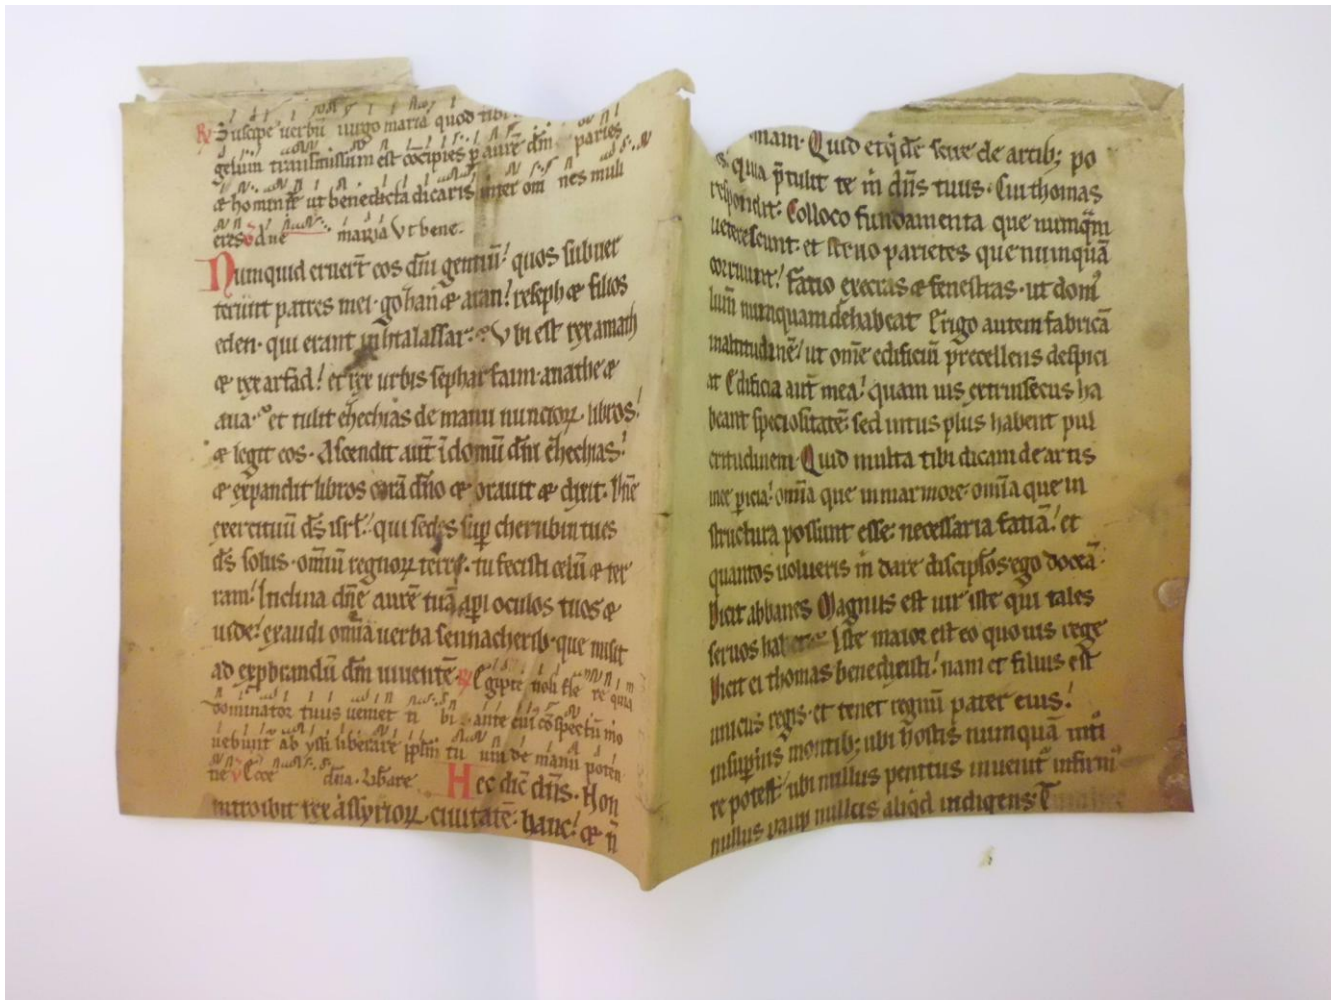 Suscipe uerbū uirgo maria quod tibi
gelum transmissum est cōcipies ꝑ aurē dm̄ paries
& hominē ut benedicta dicaris inter om nes muli
eres maria Vt bene.
Nunquid eruert̄ eos dīi gentiū! quos subuer
terūnt patres mei· gozan & aran! reseph & filios
eden· qui erant in thalassar· Vbi est rex amath
& rex arfad! et rex urbis sepharfaim· anathe &
aua· et tulit ezechias de manu nuncioꝝ libros!
& legit eos· Ascendit aut̄ ī domū dn̄i ezechias!
& expandit libros corā dn̄o & orauit & dixit· Dn̄e
exercituū ds̄ isrl̄! qui sedes suꝑ cherubin tu es
ds̄ solus· omniū regnoꝝ terre· tu fecisti celū & ter
ram! Inclina dn̄e aurē tuā aꝑi oculos tuos &
uide! exaudi omīa uerba sennacherib· que misit
ad exꝓbrandū dm̄ uiuentē· Egipte noli fle re quia
dominator tuus ueniet ti bi ante cui' cōspectū mo
uebunt' ab yssi liberare ꝓplm̄ tu um de manu poten
tie Ecce dn̄a. Liberare. Hec dic̄ dn̄s· Non
introibit rex assyrioꝝ ciuitatē· hanc! & n̄
mam· Quid etq̇dē seire de artib; po
quia p̄tulit te in dn̄s tuus· Cui thomas
respondit· Colloco fundamenta que numq̄m
ueterescunt· et struo parietes que nunquā
corruunt! fatio execras & fenestras· ut dom'
lum̄ nunquam dehabeat Erigo autem fabricā
multitudinē! ut om̄e edificiū precellens despici
at Edificia aut̄ mea! quam uis extrinsecus ha
beant speciositatē· sed intus plus habent pul
critudinem· Quid multa tibi dicam de artis
mee ꝑicia! omīa que in marmore· omīa que in
structura possunt esse· necessaria fatiā! et
quantos uolueris in dare discip̄los ego doceā·
Dicit abbanes Magnus est uir iste qui tales
seruos habere Iste maior est eo quouis rege
Dicit ei thomas benedixisti! nam et filius est
unicus regis· et tenet regnū pater eius!
in suꝑius montib; ubi hostis nunquā inti
re potest· ubi nullus penitus inuenit' infirm'
nullus pauꝑ nullus aliqd indigens·